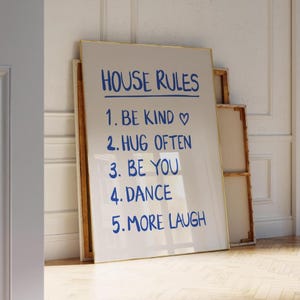 HOUSE RULES
1. BE KIND ♡
2. HUG OFTEN
3. BE YOU
4. DANCE
5. MORE LAUGH